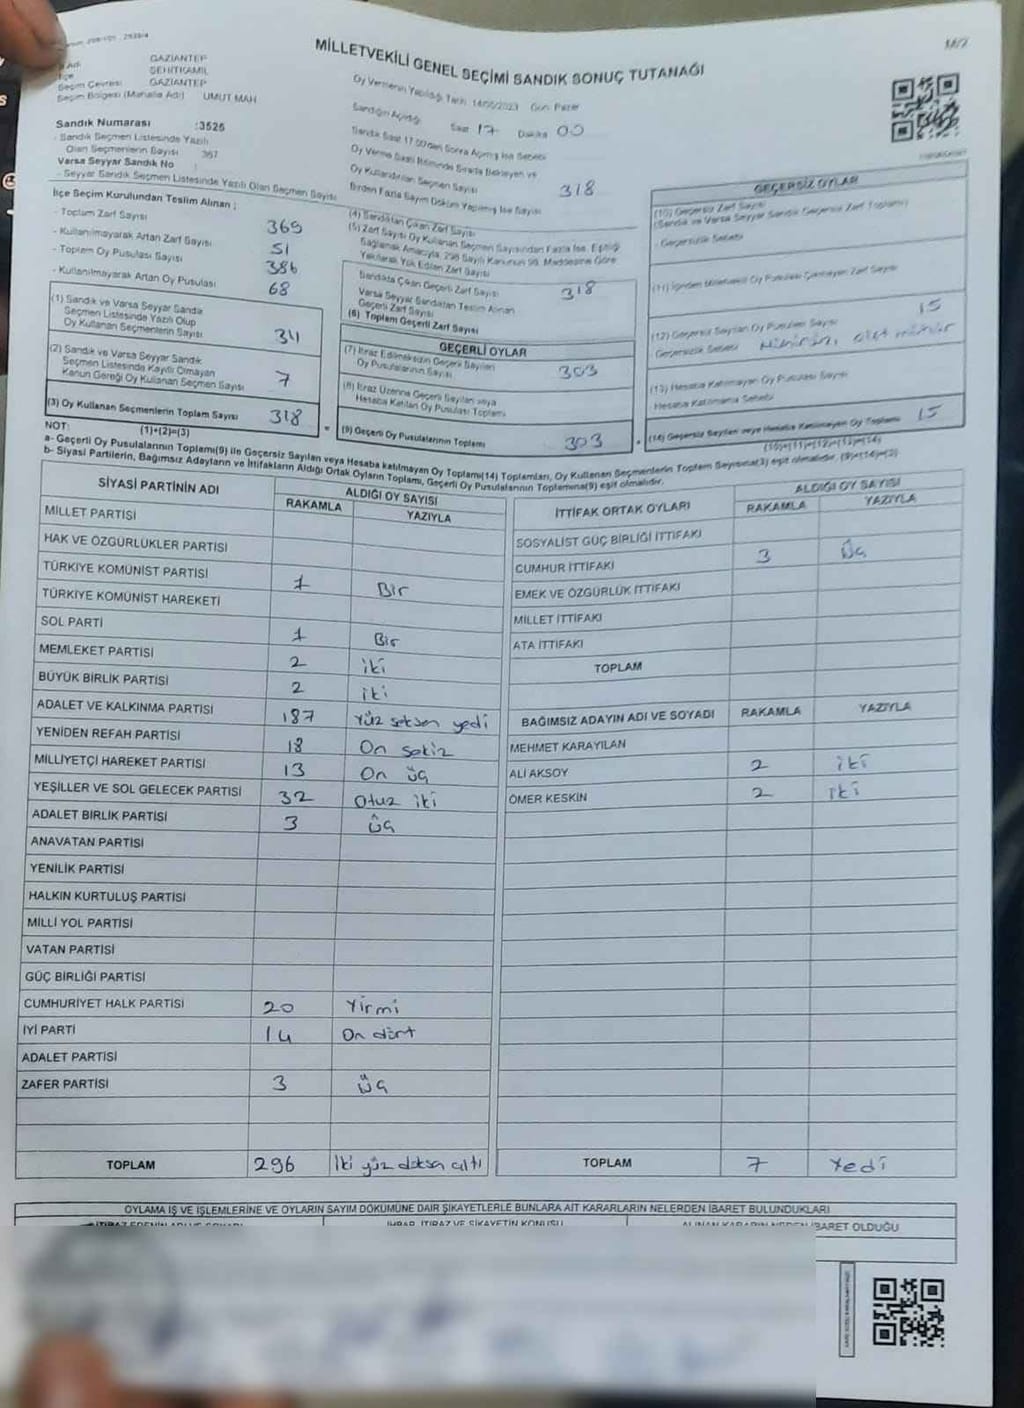 MİLLETVEKİLİ GENEL SEÇİMİ SANDIK SONUÇ TUTANAĞI
M/2
GAZİANTEP
İlçe ŞEHİTKAMİL
Seçim Çevresi GAZİANTEP
Seçim Bölgesi (Mahalle Adı) UMUT MAH
Sandık Numarası :3525
- Sandık Seçmen Listesinde Yazılı
Olan Seçmenlerin Sayısı 367
Varsa Seyyar Sandık No :
- Seyyar Sandık Seçmen Listesinde Yazılı Olan Seçmen Sayısı
Oy Vermenin Yapıldığı Tarih: 14/05/2023 Gün: Pazar
Sandığın Açıldığı Saat 17 Dakika 00
Sandık Saat 17.00'den Sonra Açılmış İse Sebebi
Oy Verme Saati Bitiminde Sırada Bekleyen ve
Oy Kullandırılan Seçmen Sayısı
Birden Fazla Sayım Döküm Yapılmış İse Sayısı
İlçe Seçim Kurulundan Teslim Alınan ;
- Toplam Zarf Sayısı 369
- Kullanılmayarak Artan Zarf Sayısı 51
- Toplam Oy Pusulası Sayısı 386
- Kullanılmayarak Artan Oy Pusulası 68
(1) Sandık ve Varsa Seyyar Sandık
Seçmen Listesinde Yazılı Olup
Oy Kullanan Seçmenlerin Sayısı 311
(2) Sandık ve Varsa Seyyar Sandık
Seçmen Listesinde Kayıtlı Olmayan
Kanun Gereği Oy Kullanan Seçmen Sayısı 7
(3) Oy Kullanan Seçmenlerin Toplam Sayısı 318
(1)+(2)=(3)
(4) Sandıktan Çıkan Zarf Sayısı 318
(5) Zarf Sayısı Oy Kullanan Seçmen Sayısından Fazla İse, Eşitliği
Sağlamak Amacıyla, 298 Sayılı Kanunun 98. Maddesine Göre
Yakılarak Yok Edilen Zarf Sayısı
Sandıkta Çıkan Geçerli Zarf Sayısı 318
Varsa Seyyar Sandıktan Teslim Alınan
Geçerli Zarf Sayısı
(6) Toplam Geçerli Zarf Sayısı
GEÇERLİ OYLAR
(7) İtiraz Edilmeksizin Geçerli Sayılan
Oy Pusulalarının Sayısı 303
(8) İtiraz Üzerine Geçerli Sayılan veya
Hesaba Katılan Oy Pusulası Toplamı
(9) Geçerli Oy Pusulalarının Toplamı 303
GEÇERSİZ OYLAR
(10) Geçersiz Zarf Sayısı
(Sandık ve Varsa Seyyar Sandık Geçersiz Zarf Toplamı)
Geçersizlik Sebebi
(11) İçinden Milletvekili Oy Pusulası Çıkmayan Zarf Sayısı
(12) Geçersiz Sayılan Oy Pusulası Sayısı 15
Geçersizlik Sebebi
(13) Hesaba Katılmayan Oy Pusulası Sayısı
Hesaba Katılmama Sebebi
(14) Geçersiz Sayılan veya Hesaba Katılmayan Oy Toplamı 15
(10)+(11)+(12)+(13)=(14)
NOT:
a- Geçerli Oy Pusulalarının Toplamı(9) ile Geçersiz Sayılan veya Hesaba katılmayan Oy Toplamı(14) Toplamları, Oy Kullanan Seçmenlerin Toplam Sayısına(3) eşit olmalıdır. (9)+(14)=(3)
b- Siyasi Partilerin, Bağımsız Adayların ve İttifakların Aldığı Ortak Oyların Toplamı, Geçerli Oy Pusulalarının Toplamına(9) eşit olmalıdır.
SİYASİ PARTİNİN ADI ALDIĞI OY SAYISI
RAKAMLA YAZIYLA
MİLLET PARTİSİ
HAK VE ÖZGÜRLÜKLER PARTİSİ
TÜRKİYE KOMÜNİST PARTİSİ 1 Bir
TÜRKİYE KOMÜNİST HAREKETİ
SOL PARTİ 1 Bir
MEMLEKET PARTİSİ 2 iki
BÜYÜK BİRLİK PARTİSİ 2 iki
ADALET VE KALKINMA PARTİSİ 187 Yüz seksen yedi
YENİDEN REFAH PARTİSİ 18 On sekiz
MİLLİYETÇİ HAREKET PARTİSİ 13 On üç
YEŞİLLER VE SOL GELECEK PARTİSİ 32 Otuz iki
ADALET BİRLİK PARTİSİ 3 üç
ANAVATAN PARTİSİ
YENİLİK PARTİSİ
HALKIN KURTULUŞ PARTİSİ
MİLLİ YOL PARTİSİ
VATAN PARTİSİ
GÜÇ BİRLİĞİ PARTİSİ
CUMHURİYET HALK PARTİSİ 20 Yirmi
İYİ PARTİ 14 On dört
ADALET PARTİSİ
ZAFER PARTİSİ 3 üç
TOPLAM 296 İki yüz doksan altı
İTTİFAK ORTAK OYLARI ALDIĞI OY SAYISI
RAKAMLA YAZIYLA
SOSYALİST GÜÇ BİRLİĞİ İTTİFAKI
CUMHUR İTTİFAKI 3 Üç
EMEK VE ÖZGÜRLÜK İTTİFAKI
MİLLET İTTİFAKI
ATA İTTİFAKI
TOPLAM
BAĞIMSIZ ADAYIN ADI VE SOYADI RAKAMLA YAZIYLA
MEHMET KARAYILAN
ALİ AKSOY 2 iki
ÖMER KESKİN 2 iki
TOPLAM 7 Yedi
OYLAMA İŞ VE İŞLEMLERİNE VE OYLARIN SAYIM DÖKÜMÜNE DAİR ŞİKAYETLERLE BUNLARA AİT KARARLARIN NELERDEN İBARET BULUNDUKLARI
İHBAR, İTİRAZ VE ŞİKAYETİN KONUSU ALINAN KARARIN NEDEN İBARET OLDUĞU